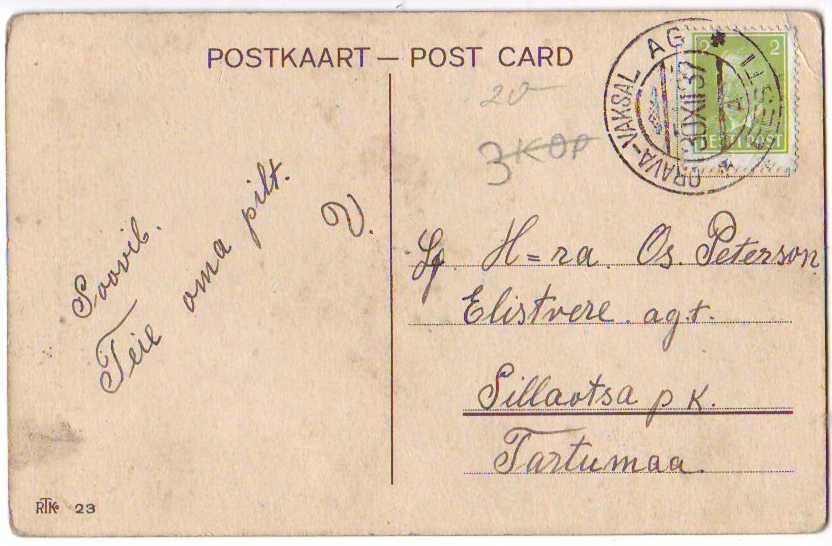 POSTKAART — POST CARD
ORAVA-VAKSAL AG
EESTI
30XII37
2 2
EESTI POST
20-
3 KOP
Soovib.
Teie oma pilt.
V.
Lg. H=ra. Os. Peterson
Elistvere. ag.t.
Sillaotsa pk.
Tartumaa.
RTK 23